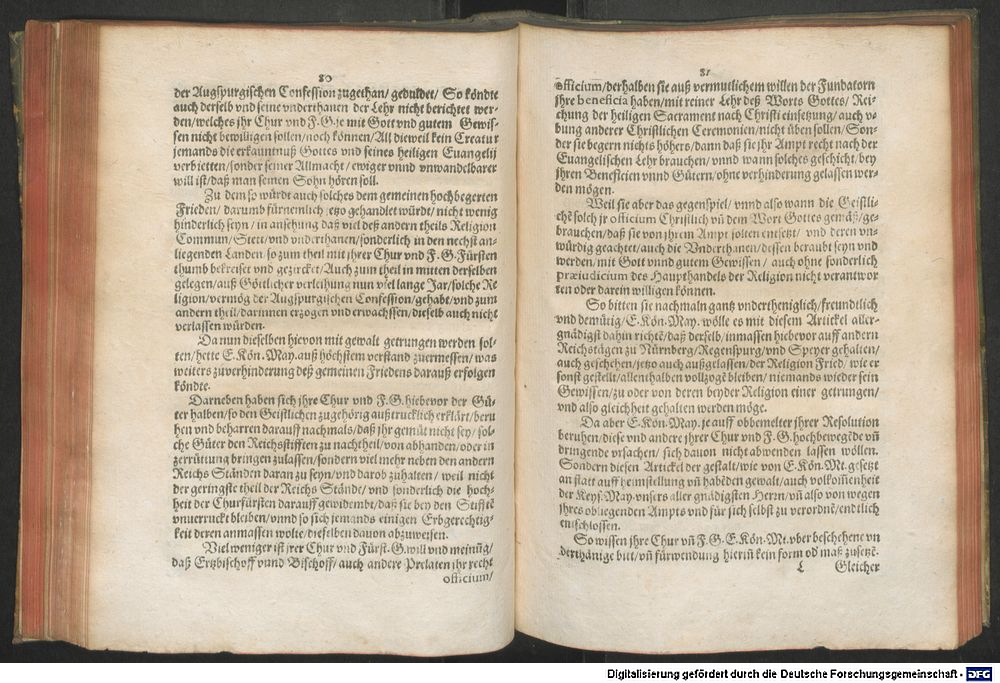 80
der Augspurgischen Confession zugethan/ geduldet/ So köndte
auch derselb vnd seine vnderthanen der Lehr nicht berichtet wer-
den/welches jhr Chur vnd F.G.je mit Gott vnd gutem Gewis-
sen nicht bewilligen sollen/noch können/All dieweil kein Creatur
jemands die erkäntnuß Gottes vnd seines heiligen Euangelij
verbietten/sonder seiner Allmacht/ewiger vnnd vnwandelbarer
will ist/daß man seinen Sohn hören soll.
Zu dem so würdt auch solches dem gemeinen hochbegerten
Frieden/ darumb fürnemlich jetzo gehandlet würdt/nicht wenig
hinderlich seyn/ in ansehung daß viel deß andern theils Religion
Commun/Stett/vnd vnderthanen/sonderlich in den nechst an-
liegenden Landen/so zum theil mit jhrer Chur vnd F.G.Fürsten
thumb bekreiset vnd gezircket/Auch zum theil in mitten derselben
gelegen/auß Göttlicher verleihung nun viel lange Jar/solche Re
ligion/vermög der Augspurgischen Confession/gehabt/vnd zum
andern theil/darinnen erzogen vnd erwachssen/dieselb auch nicht
verlassen würden.
Da nun dieselben hievon mit gewalt getrungen werden sol-
ten/hette E.Kön.May.auß höchstem verstand zuermessen/was
weiters zuverhinderung deß gemeinen Friedens darauß erfolgen
köndte.
Darneben haben sich jhre Chur vnd F.G.hiebevor der Gü-
ter halben/so den Geistlichen zugehörig außtrucklich erklärt/beru
hen vnd beharren darauff nachmals/daß jhr gemüt nicht sey/sol-
che Güter den Reichsstifften zu nachtheil/von abhanden/oder in
zerrütung bringen zulassen/sondern viel mehr neben den andern
Reichs Ständen daran zu seyn/vnd darob zuhalten/ weil nicht
der geringste theil der Reichs Stände/vnd sonderlich die hoch-
heit der Churfürsten darauff gewidembt/daß sie bey den Stifftē
vnuerruckt bleiben/vnnd so sich jemands einigen Erbgerechtig-
keit deren anmassen wolte/dieselben dauon abzuweisen.
Viel weniger ist jrer Chur vnd Fürst.G.will vnd meinūg/
daß Ertzbischoff vnnd Bischoff/auch andere Prelaten jhr recht
officium/
81
officium/derhalben sie auß vermutlichem willen der Fundatorn
jhre beneficia haben/mit reiner Lehr deß Worts Gottes/ Rei-
chung der heiligen Sacrament nach Christi einsetzung/auch v-
bung anderer Christlichen Ceremonien/nicht üben sollen/Son-
der sie begern nichts höhers/dann daß sie jhr Ampt recht nach der
Euangelischen Lehr brauchen/vnnd wann solches geschicht/bey
jhren Beneficien vnnd Gütern/ohne verhinderung gelassen wer-
den mögen.
Weil sie aber das gegenspiel/vnnd also wann die Geistli-
chē solch jr officium Christlich vn̄ dem Wort Gottes gemäß/ge-
brauchen/daß sie von jhrem Ampt solten entsetzt/ vnd deren vn-
würdig geachtet/auch die Vnderthanen/dessen beraubt seyn vnd
werden/mit Gott vnnd gutem Gewissen/ auch ohne sonderlich
præiudicium des Haupthandels der Religion nicht verantwor
ten oder darein willigen können.
So bitten sie nachmaln gantz vndertheniglich/freundtlich
vnd demütig/E.Kön.May.wölle es mit diesem Artickel aller-
gnädigst dahin richtē/daß derselb/inmassen hiebevor auff andern
Reichstägen zu Nürnberg/Regenspurg/vnd Speyer gehalten/
auch geschehen/jetzo auch außgelassen/der Religion Fried/wie er
sonst gestellt/allenthalben vollzogē bleiben/niemands wieder sein
Gewissen/zu oder von deren beyder Religion einer getrungen/
vnd also gleichheit gehalten werden möge.
Da aber E.Kön.May.je auff obbemelter jhrer Resolution
beruhen/diese vnd andere jhrer Chur vnd F.G.hochbewegēde vn̄
dringende vrsachen/sich dauon nicht abwenden lassen wöllen.
Sondern diesen Artickel der gestalt/wie von E.Kön.Mt.gesetzt
an statt auff heimstellung vn̄ habēden gewalt/auch volkom̄enheit
der Keys.May.vnsers aller gnädigsten Herrn/vn̄ also von wegen
jhres obliegenden Ampts vnd für sich selbst zu verordnē/endtlich
entschlossen.
So wissen jhre Chur vn̄ F.G.E.Kön.Mt.vber beschehene vn
derthänige bitt/vn̄ fürwendung hierin̄ kein form od maß zusetzē.
L Gleicher
Digitalisierung gefördert durch die Deutsche Forschungsgemeinschaft - DFG